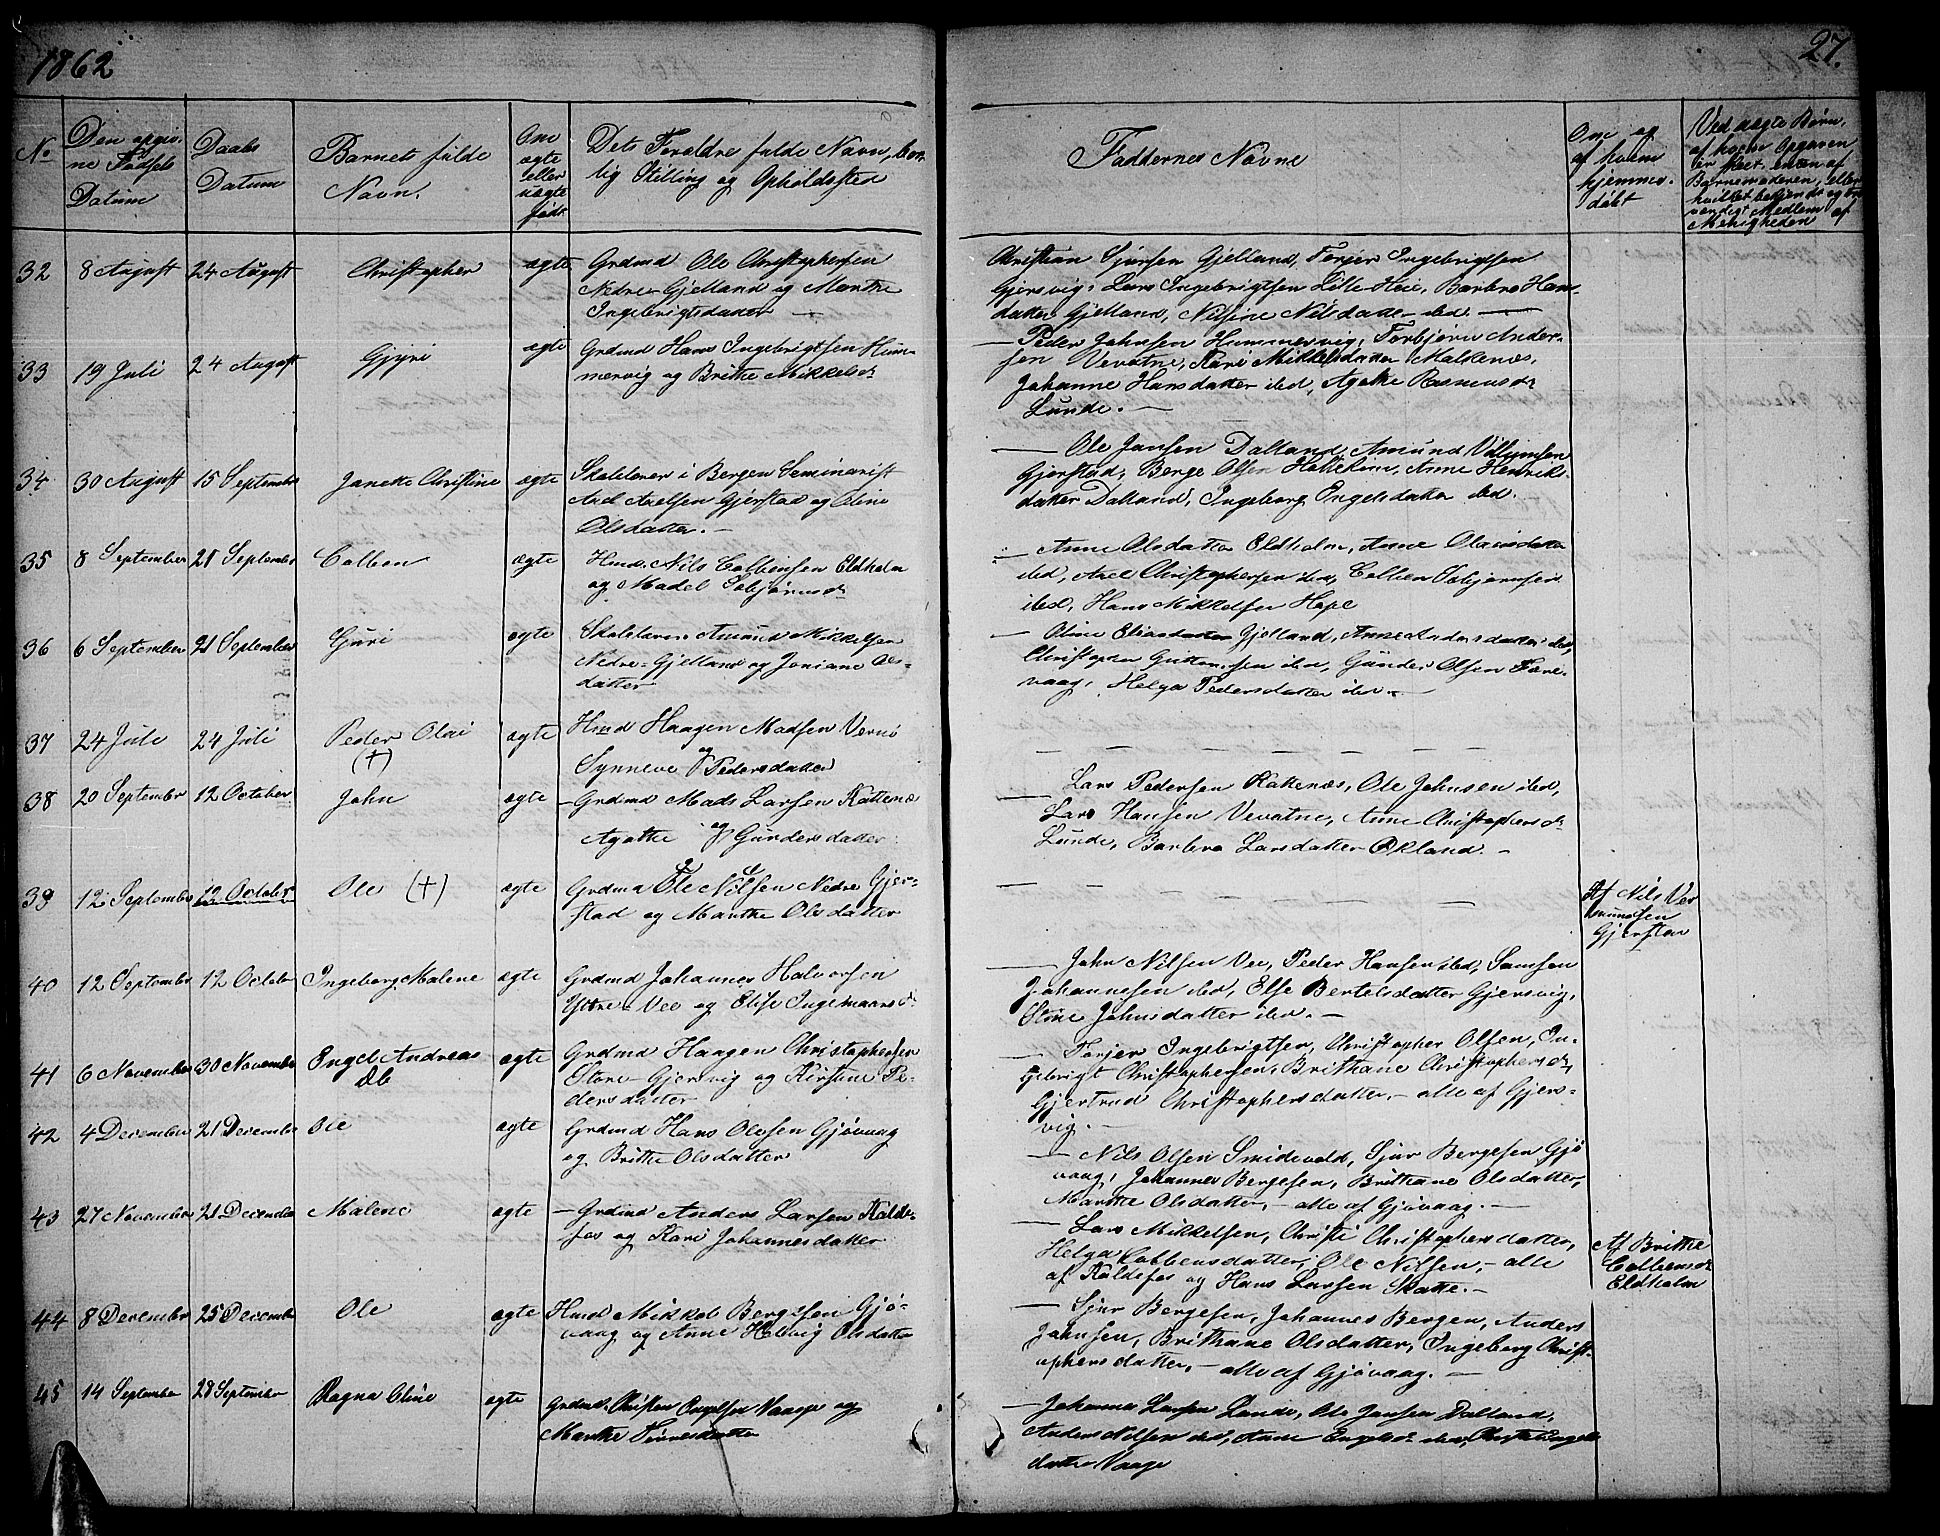 1862
27.
No
Den opgiv-
ne Fødsels
Datum
Daabs
Datum
Barnets fulde
Navn.
Om
ægte
eller
uægte
født.
Dets Foreldre fulde Navn, bor-
lig Stilling og Opholdssted
Faddernes Navne
Om og
af hvem
hjemme-
døbt
Ved uægte Børn,
af hvem Opgaven
er skeet, enten af
Barnemoderen, eller
Medlem af
Menigheden
32 8 August 24 August Christopher ægte Grdmd Ole Christophersen
Nedre-Gjelland og Marthe
Ingebrigtsdatter
Christian Sjursen Gjelland, Torjer Ingebrigtsen
Gjersvig, Lars Ingebrigtsen Lille-Hei, Barbro Hans-
datter Gjelland, Nilsine Nilsdatter ibd.
33 19 Juli 24 August Gjyri ægte Grdmd Hans Ingebrigtsen Hum-
mervig og Brithe Mikkelsdr
— Peder Johnsen Hummervig, Torbjørn Ander-
sen Vevatne, Kari Mikkelsdatter Malkenæs,
Johanne Hansdatter ibd, Agathe Rasmusdr
Lunde. —
34 30 August 15 September Janeke Christine ægte Skolelærer i Bergen Seminarist
Axel Axelsen Gjerstad og Oline
Olsdatter. —
— Ole Jansen Dalland, Amund Villumsen
Gjerstad, Berge Olsen Hatleheim, Anne Henrik-
datter Dalland, Ingeborg Engelsdatter ibd.
35 8 September 21 September Colben ægte Hmd. Nils Colbensen Eldholm
og Madel Tobjørnsdr
— Anne Olsdatter Eldholm, Anne Olainsdatter
ibd, Axel Christophersen ibd, Colben Tobjørnsen
ibd, Hans Mikkelsen Hope
36 6 September 21 September Guri ægte Skolelærer Amund Mikkelsen
Nedre-Gjelland og Joniane Ols-
datter
— Oline Eliasdatter Gjelland, Anne Andersdatter ibd,
Christopher Guttormsen ibd, Gunder Olsen Tære-
vaag, Helga Pedersdatter ibd. —
37 24 Juli 24 Juli Peder Olai
(+) ægte Hmd Haagen Madsen Vernø
Synneve og Pedersdatter
— — — — — —
38 20 September 12 October John ægte — Grdmd Mads Larsen Kattenæs
Agathe og Gundersdatter
— Lars Pedersen Kattenæs, Ole Johnsen ibd,
Lars Hansen Vevatne, Anne Christophersdr
Lunde, Barbro Larsdatter Økland. —
39 12 September 12 October Ole (+) ægte Grdmd Ole Nilsen Nedre Gjer-
stad og Marthe Olsdatter
— — — — — —
Af Nils Ver
mundsen
Gjerstad
40 12 September 12 October Ingeborg Malene ægte Grdmd Johannes Halvorsen
Ytre-Vee og Elise Ingemaarsdr
— John Nilsen Vee, Peder Hansen ibd, Samson
Johannesen ibd, Else Bertelsdatter Gjersvig,
Stine Johnsdatter ibd. —
41 6 November 30 November Engel Andreas
Db ægte Grdmd Haagen Christophersen
Store-Gjersvig og Kirstine Pe-
dersdatter
— Torjer Ingebrigtsen, Christopher Olsen, In-
gebrigt Christophersen, Brithane Christophersdr,
Gjertrud Christophersdatter, — alle af Gjers-
vig. —
42 4 December 21 December Ole ægte Grdmd Hans Olesen Gjøvaag
og Brithe Olsdatter
— Nils Olsen Smidevold, Sjur Bergesen Gjø
vaag, Johannes Bergesen, Brithane Olsdatter,
Marthe Olsdatter, — alle af Gjøvaag. —
43 27 November 21 December Malene ægte — Grdmd Anders Larsen Kalde-
fos og Kari Johannesdatter
— Lars Mikkelsen, Christi Christophersdatter,
Helga Colbensdatter, Ole Nilsen, — alle
af Kaldefos og Hans Larsen Skatte. —
Af Brithe
Colbensdr
Eldholm
44 8 December 25 December Ole ægte Hmd Mikkel Bergesen Gjø-
vaag og Anne Helvig Olsdatter
— Sjur Bergesen, Johannes Bergen, Anders
Johnsen, Brithane Olsdatter, Ingeborg Christ-
ophersdatter, — alle af Gjøvaag. —
45 14 September 28 September Ragna Oline ægte Grdmd. Christen Engelsen Vaage og
Marthe Tønnesdatter
— Johanna Larsen Lunde, Ole Jansen Dalland,
Anders Nilsen ibd, Anne Engelsdr ibd, Engels
datter Vaage